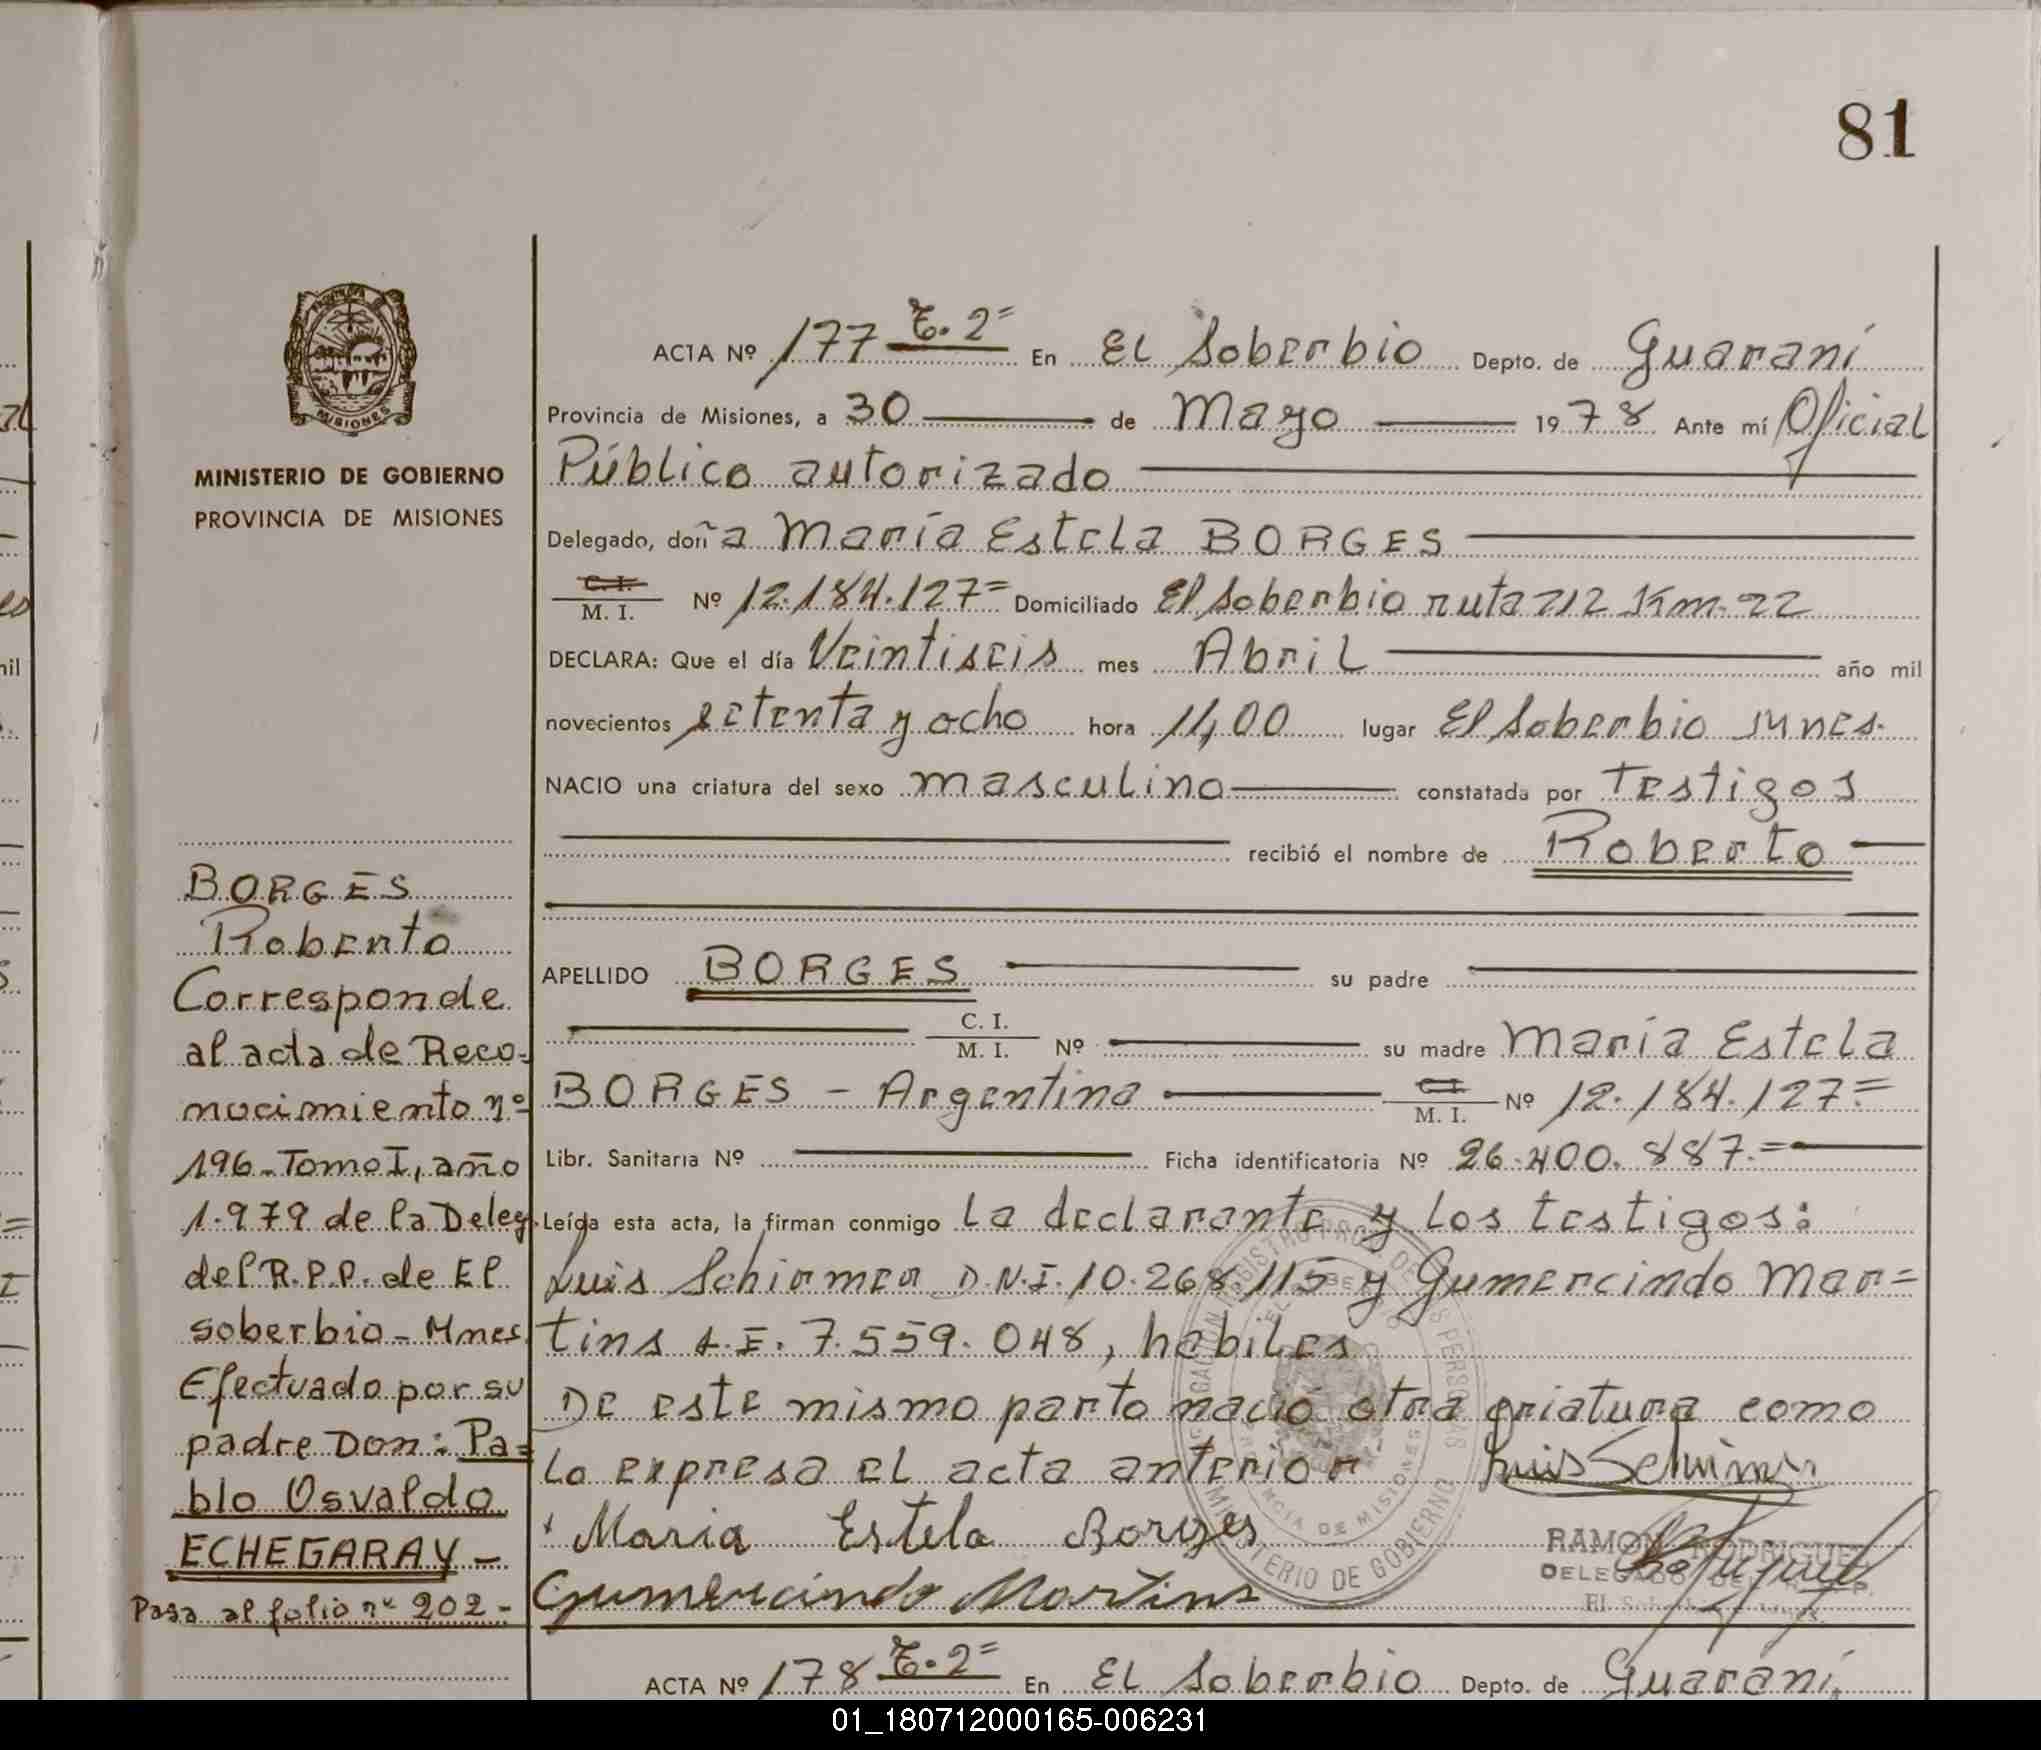 81
ACTA Nº 177 T.2= En El Soberbio Depto. de Guaraní
Provincia de Misiones, a 30 de Mayo 1978 Ante mí Oficial
Público autorizado
Delegado, doña María Estela BORGES
C. I.
M. I. Nº 12.184.127= Domiciliado El Soberbio ruta 212 Km. 22
DECLARA: Que el día Veintiseis mes Abril año mil
novecientos setenta y ocho hora 11,00 lugar El Soberbio Mnes.
NACIO una criatura del sexo masculino constatada por Testigos
recibió el nombre de Roberto
APELLIDO BORGES su padre
C. I.
M. I. Nº su madre María Estela
BORGES - Argentina C I M. I. Nº 12.184.127=
Libr. Sanitaria Nº Ficha identificatoria Nº 26.400.887.=
Leída esta acta, la firman conmigo la declarante y los testigos:
Luis Schirmer D.N.I. 10.268.115 y Gumercindo Mar=
tins L.E. 7.559.048, habiles
De este mismo parto nació otra criatura como
lo expresa el acta anterior Luis Schirmer
Maria Estela Borges
Gumercindo Martins
RAMON RODRIGUEZ
DELEGADO DEL R. P. P.
El Soberbio
MINISTERIO DE GOBIERNO
PROVINCIA DE MISIONES
MISIONES
BORGES
Roberto
Corresponde
al acta de Reco-
nocimiento nº
196-Tomo I, año
1.979 de la Deleg.
del R.P.P. de El
Soberbio-Mnes.
Efectuado por su
padre Don: Pa=
blo Osvaldo
ECHEGARAY-
Pasa al folio nº 202-
ACTA Nº 178 T.2= En El Soberbio Depto. de Guaraní
01_180712000165-006231